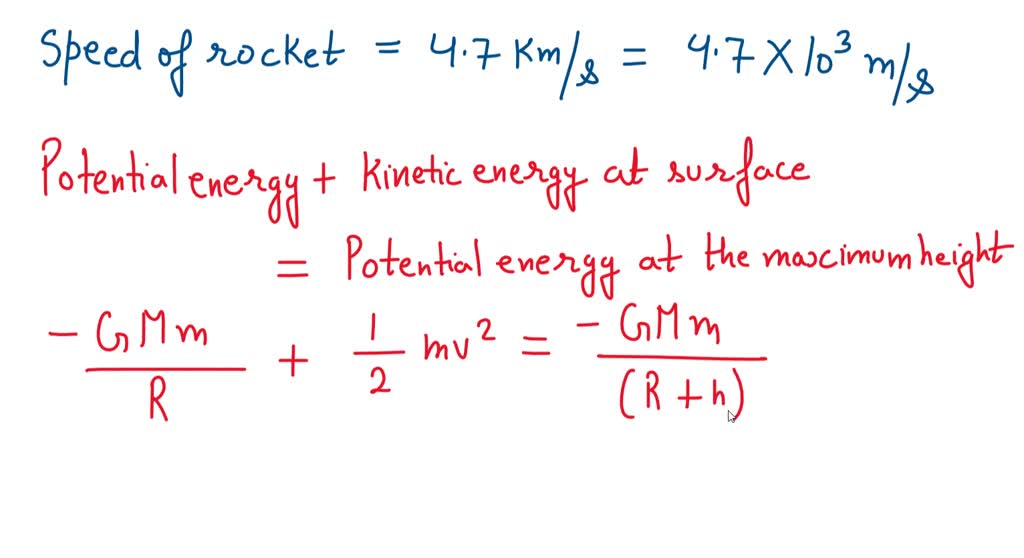 Speed of rocket = 4.7 Km/s = 4.7 X 10³ m/s
Potential energy + Kinetic energy at surface
= Potential energy at the maximum height
- GMm / R + 1/2 mv² = - GMm / (R + h)